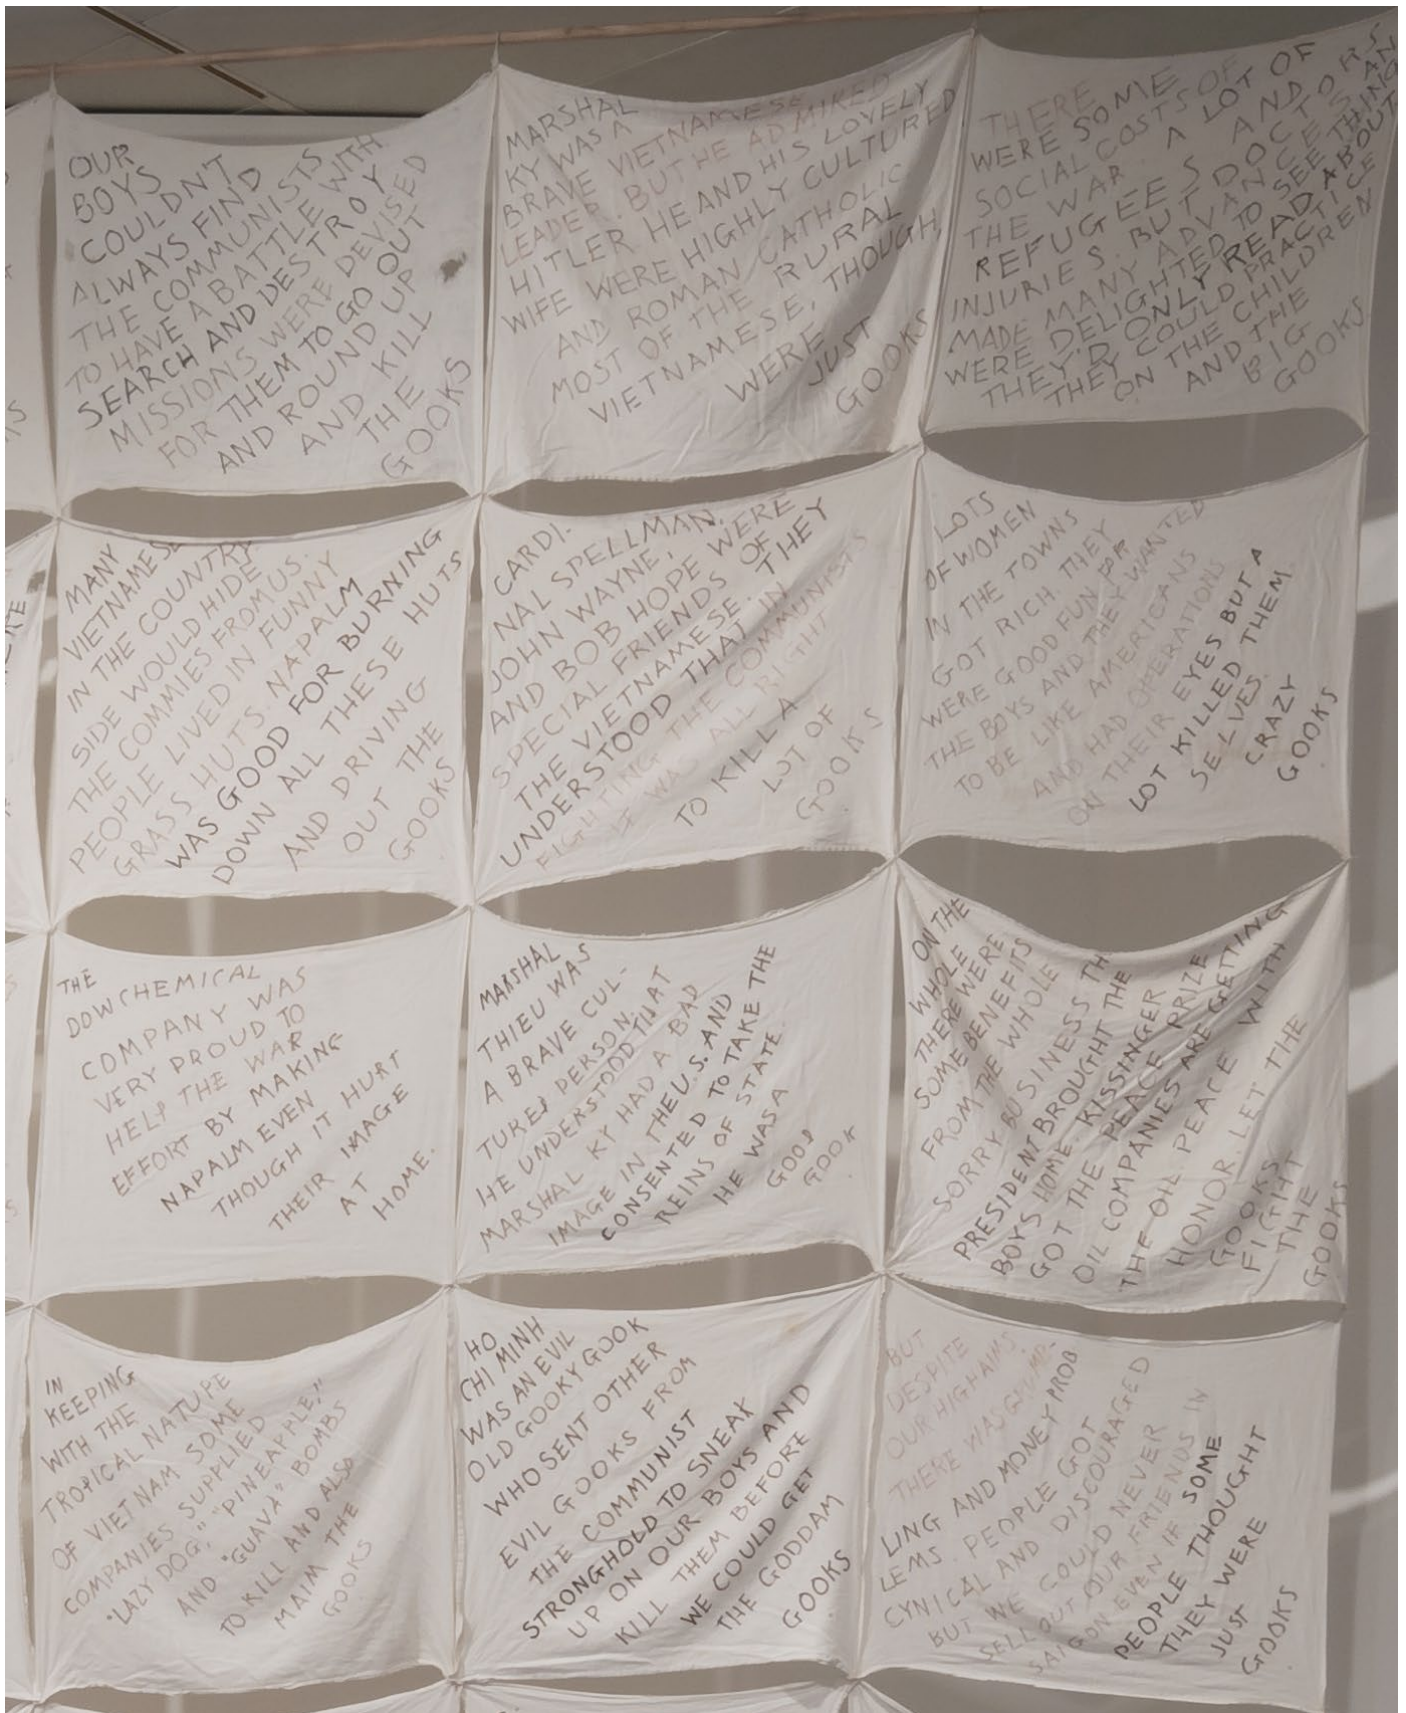 OUR
BOYS
COULDN'T
ALWAYS FIND
THE COMMUNISTS
TO HAVE A BATTLE WITH
SEARCH AND DESTROY
MISSIONS WERE DEVISED
FOR THEM TO GO OUT
AND ROUND UP
AND KILL
THE
GOOKS
MARSHAL
KY WAS A
BRAVE VIETNAMESE
LEADER. BUT HE ADMIRED
HITLER HE AND HIS LOVELY
WIFE WERE HIGHLY CULTURED
AND ROMAN CATHOLIC
MOST OF THE RURAL
VIETNAMESE, THOUGH,
WERE
JUST
GOOKS
THERE
WERE SOME
SOCIAL COSTS OF
THE WAR. A LOT OF
REFUGEES AND
INJURIES. BUT DOCTORS
MADE MANY ADVANCES AN
WERE DELIGHTED TO SEE THING
THEY'D ONLY READ ABOUT
THEY COULD PRACTICE
ON THE CHILDREN
AND THE
BIG
GOOKS.
MANY
VIETNAMESE
IN THE COUNTRY
SIDE WOULD HIDE
THE COMMIES FROM US.
PEOPLE LIVED IN FUNNY
GRASS HUTS. NAPALM
WAS GOOD FOR BURNING
DOWN ALL THESE HUTS
AND DRIVING
OUT THE
GOOKS
CARDI-
NAL SPELLMAN,
JOHN WAYNE,
AND BOB HOPE WERE
SPECIAL FRIENDS OF
THE VIETNAMESE. THEY
UNDERSTOOD THAT IN
FIGHTING THE COMMUNISTS
IT WAS ALL RIGHT
TO KILL A
LOT OF
GOOKS
LOTS
OF WOMEN
IN THE TOWNS
GOT RICH. THEY
WERE GOOD FUN FOR
THE BOYS AND THEY WANTED
TO BE LIKE AMERICANS
AND HAD OPERATIONS
ON THEIR EYES BUT A
LOT KILLED THEM
SELVES.
CRAZY
GOOKS
THE
DOW CHEMICAL
COMPANY WAS
VERY PROUD TO
HELP THE WAR
EFFORT BY MAKING
NAPALM EVEN
THOUGH IT HURT
THEIR IMAGE
AT
HOME.
MARSHAL
THIEU WAS
A BRAVE CUL-
TURED PERSON.
HE UNDERSTOOD THAT
MARSHAL KY HAD A BAD
IMAGE IN THE U.S. AND
CONSENTED TO TAKE THE
REINS OF STATE.
HE WAS A
GOOD
GOOK.
ON THE
WHOLE
THERE WERE
SOME BENEFITS
FROM THE WHOLE
SORRY BUSINESS TH
PRESIDENT BROUGHT THE
BOYS HOME. KISSINGER
GOT THE PEACE PRIZE
OIL COMPANIES ARE GETTING
THE OIL PEACE WITH
HONOR. LET THE
GOOKS
FIGHT
THE
GOOKS
IN
KEEPING
WITH THE
TROPICAL NATURE
OF VIET NAM SOME
COMPANIES SUPPLIED
"LAZY DOG," "PINEAPPLE,"
AND "GUAVA" BOMBS
TO KILL AND ALSO
MAIM THE
GOOKS
HO
CHI MINH
WAS AN EVIL
OLD GOOKY GOOK
WHO SENT OTHER
EVIL GOOKS FROM
THE COMMUNIST
STRONGHOLD TO SNEAK
UP ON OUR BOYS AND
KILL THEM BEFORE
WE COULD GET
THE GODDAM
GOOKS
BUT
DESPITE
OUR HIGH AIMS,
THERE WAS GRUMB-
LING AND MONEY PROB
LEMS. PEOPLE GOT
CYNICAL AND DISCOURAGED
BUT WE COULD NEVER
SELL OUT OUR FRIENDS IN
SAIGON EVEN IF SOME
PEOPLE THOUGHT
THEY WERE
JUST
GOOKS.